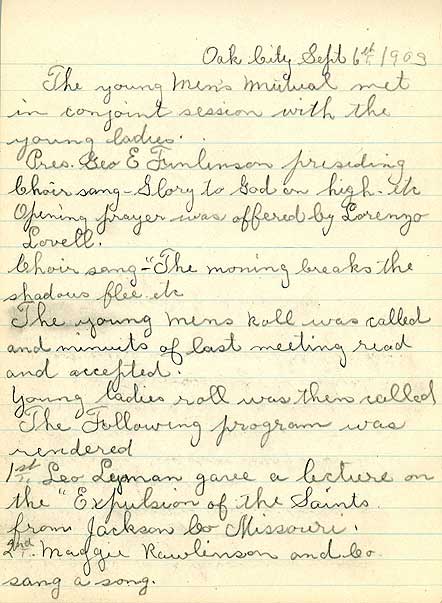 Oak City Sept 6th 1903
The young Men's mutual met
in conjoint session with the
young ladies.
Pres. Geo E Finlinson presiding
Choir sang - Glory to God on high. etc
Opening prayer was offered by Lorenzo
Lovell.
Choir sang - "The moning breaks the
shadous flee etc
The young mens roll was called
and minuits of last meeting read
and accepted.
Young ladies roll was then called
The Following program was
rendered
1st Leo Lyman gave a lecture on
the "Expulsion of the Saints
from Jackson Co Missouri.
2nd. Maggie Rawlinson and Co
sang a song.